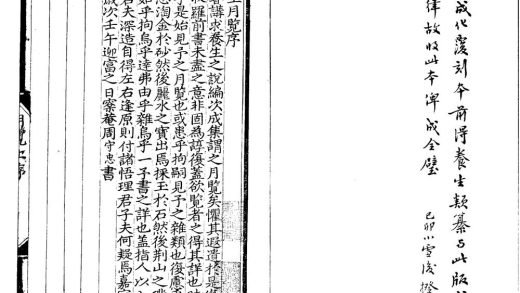 成化覆刻本前得養生類纂与此版
律故收此本俾成全璧
己卯小雪後
生月覽序
嘗講求養生之說編次成集謂之月覽矣懼其遐遺於是
收羅前書未盡之意非固為諄復蓋欲覽者之得其詳也
于是始見予之月覽也或患乎拘嗣見予之雜類也復慮
悉淘金於砂然後麗水之寶出焉採玉於石然後荊山之
如乎拘烏乎達弗由乎雜烏乎一予書之詳也蓋指人以
君夫深造自得左右逢原則付諸悟理君子夫何疑焉嘉
歲次壬午迎富之日寮菴周守忠書
月覽上